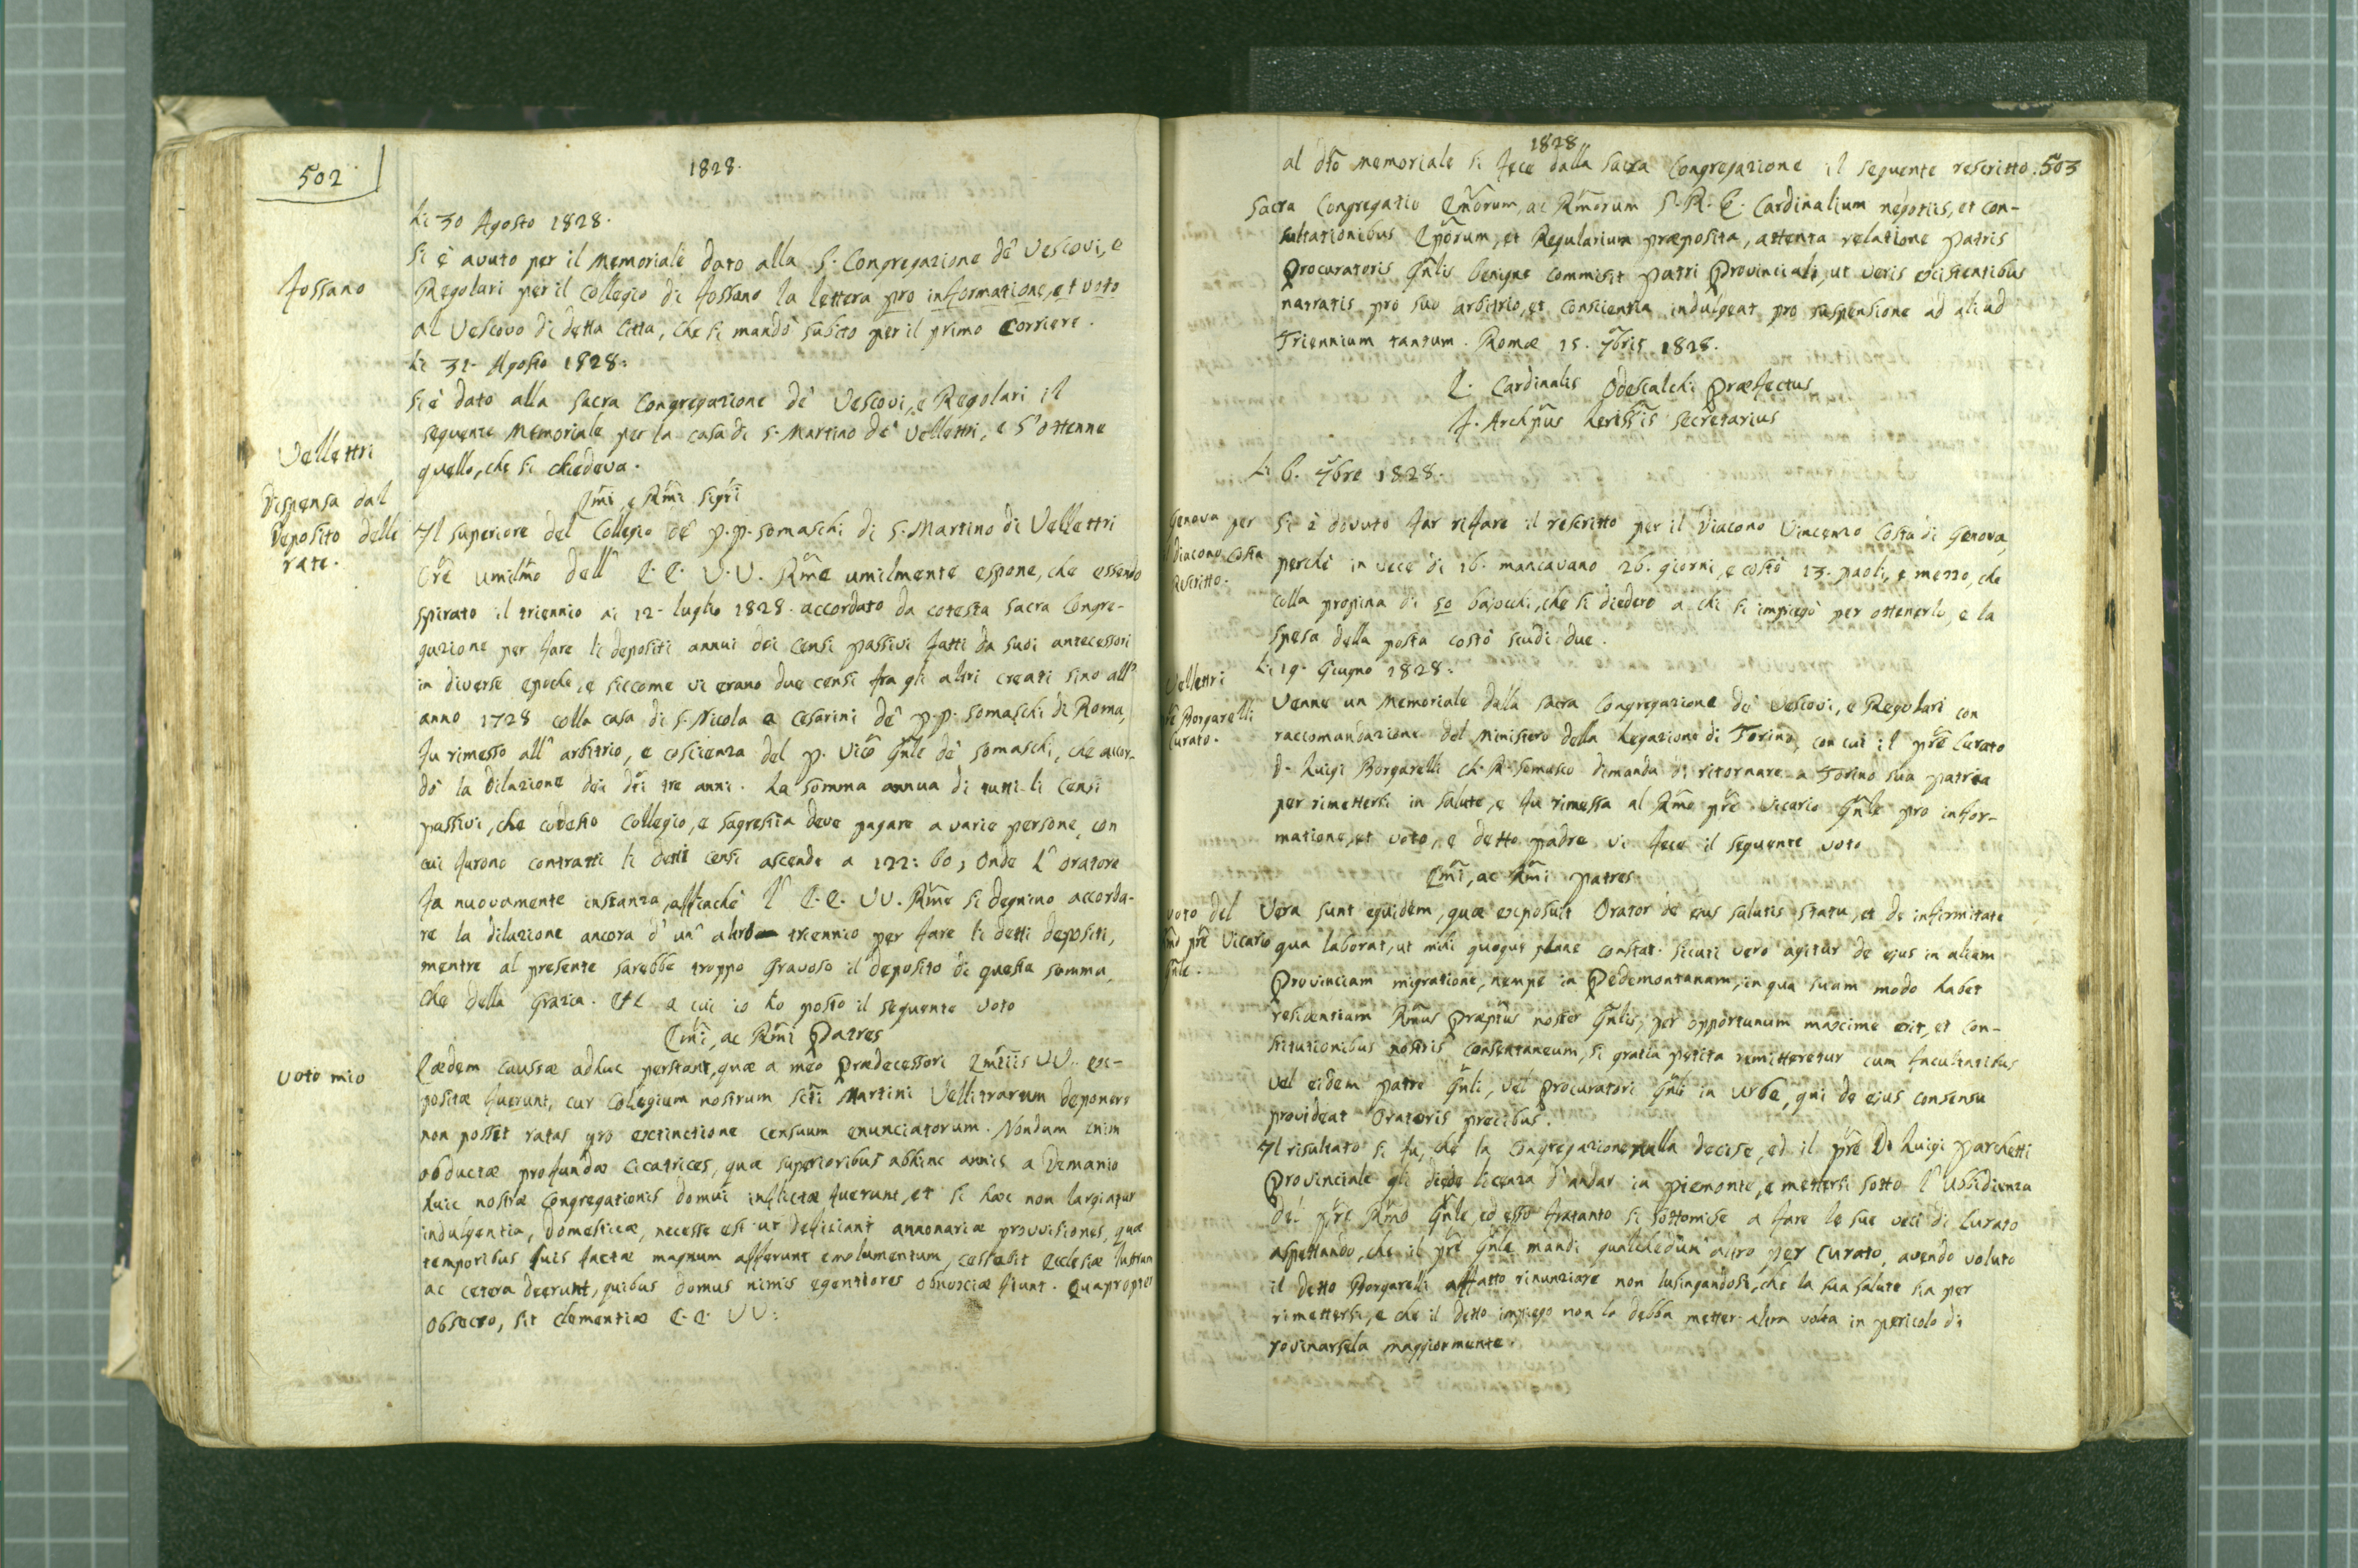 502
1828.
Li 30 Agosto 1828.
Fossano
Si è avuto per il Memoriale dato alla S. Congregazione de' Vescovi, e
Regolari per il Collegio di Fossano la lettera pro informatione, et voto
al Vescovo di detta Citta, che si mandò subito per il primo Corriere.
Li 31. Agosto 1828.
Si è dato alla Sacra Congregazione de' Vescovi, e Regolari il
Vellettri
sequente Memoriale per la casa di S. Martino de' Vellettri, e s'ottenne
quello, che si chiedeva.
Dispensa dal
Deposito delle
rate.
Emi, e Rmi Sigri
Il superiore del Collegio de' P.P. Somaschi di S. Martino di Vellettri
Ore umilmo dell' E.E. V.V. Rme umilmente espone, che essendo
spirato il triennio ai 12. luglio 1828. accordato da cotesta Sacra Congre-
gazione per fare li depositi annui dei Censi passivi fatti da suoi antecessori
in diverse epoche, e siccome vi erano due censi fra gli altri creati sino all'
anno 1728 colla casa di S. Nicola a Cesarini de' P.P. Somaschi di Roma,
fu rimesso all' arbitrio, e coscienza del P. Vico Gnle de' Somaschi, che accor-
dò la Dilazione dei dti tre anni. La somma annua di tutti li Censi
passivi, che codesto Collegio, e sagrestia deve pagare a varie persone, con
cui furono contratti li detti censi ascende a 122: 60; Onde l' oratore
fa nuovamente instanza, affinchè l' E.E. VV. Rme si degnino accorda-
re la dilazione ancora d' un' altro triennio per fare li detti depositi,
mentre al presente sarebbe troppo gravoso il deposito di questa somma,
che della Grazia. Etc a cui io ho posto il sequente voto
Emi, ac Rmi Patres
voto mio
Eædem caussæ adhuc perstant, quæ a meo Prædecessori Emtiis VV. ex-
positæ fuerunt, cur Collegium nostrum Scti Martini Vellitrarum deponere
non posset ratas pro exctinctione censuum enunciatorum. Nondum enim
obductæ profundæ cicatrices, quæ superioribus abhinc annis a Demanio
huic nostræ Congregationis domui inflictæ fuerunt, et si hæc non largiatur
indulgentia, domesticæ, necesse est ut deficiant annonariæ provvisiones, quæ
temporibus suis factæ magnum afferunt emolumentum, cessabit Ecclesiæ lustrum
ac cetera deerunt, quibus domus nimis egentiores obnoxiæ fiunt. Quapropter
obsecro, sit clementiæ E.E. VV:
1828
503
al dto Memoriale si fece dalla Sacra Congregazione il sequente rescritto.
Sacra Congregatio Emorum, ac Rmorum S.R.E. Cardinalium negotiis, et con-
sultationibus Eporum, et Regularium præposita, attenta relatione Patris
Procuratoris Gnlis benigne commisit Patri Provinciali, ut veris existentibus
narratis pro suo arbitrio, et conscientia indulgeat pro suspensione ad aliud
Triennium tantum. Romæ 15. 7bris 1828.
C. Cardinalis Odescalchi Præfectus
secretarius
Li 6. 7bre 1828.
Genova per
il Diacono Costa
Rescritto.
Si è dovuto far rifare il rescritto per il Diacono Vincenzo Costa di Genova,
perchè in vece di 16. mancavano 26. giorni, e costò 13. paoli, e mezzo, che
colla propina di 50 bajocchi, che si diedero a chi si impiegò per ottenerlo, e la
spesa della posta costò scudi due.
Li 19. Giugno 1828.
Vellettri
Pre Borgarelli
Curato.
Venne un Memoriale dalla Sacra Congregazione de' Vescovi, e Regolari con
raccomandazione del Ministero della Legazione di Torino, con cui il Pre Curato
D. Luigi Borgarelli Ch. R. Somasco dimanda di ritornare a Torino sua patria
per rimettersi in salute, e fu rimessa al Rmo Pre Vicario Gnle pro infor-
matione, et voto, e detto Padre vi fece il sequente voto
Emi, ac Rmi Patres
voto del
Rmo Pre Vicario
Gnle.
Vera sunt equidem, quæ exposuit Orator de ejus salutis statu, et de infirmitate
qua laborat, ut mihi quoque plane constat. Sicuti vero agitur de ejus in aliam
Provinciam migratione, nempe in Pedemontanam, in qua suam modo habet
residentiam Rmus Præptus noster Gnlis, per opportunum maxime erit, et con-
stitutionibus nostris consentaneum, si gratia petita remitteretur cum facultatibus
vel eidem Patre Gnli, vel Procuratori Gnli in Urbe, qui de ejus consensu
provideat Oratoris precibus.
Il risultato si fu, che la Congregazione nulla decise, ed il Pre D. Luigi Parchetti
Provinciale gli diede licenza d'andar in Piemonte, e mettersi sotto l' Ubbidienza
del Pre Rmo Gnle, ed esso fratanto si sottomise a fare le sue veci di Curato
aspettando, che il Pre Gnle mandi qualchedun' altro per Curato, avendo voluto
il detto Borgarelli affatto rinunziare non lusingandosi, che la sua salute sia per
rimettersi, e che il detto impiego non lo debba metter altra volta in pericolo di
rovinarsela maggiormente.